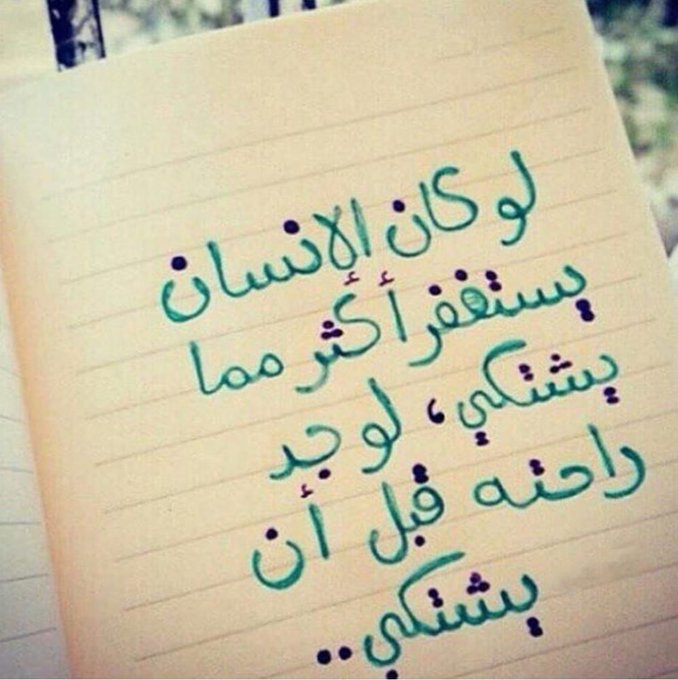 لو كان الإنسان
يستغفر أكثر مما
يشتكي، لوجد
راحته قبل أن
يشتكي..